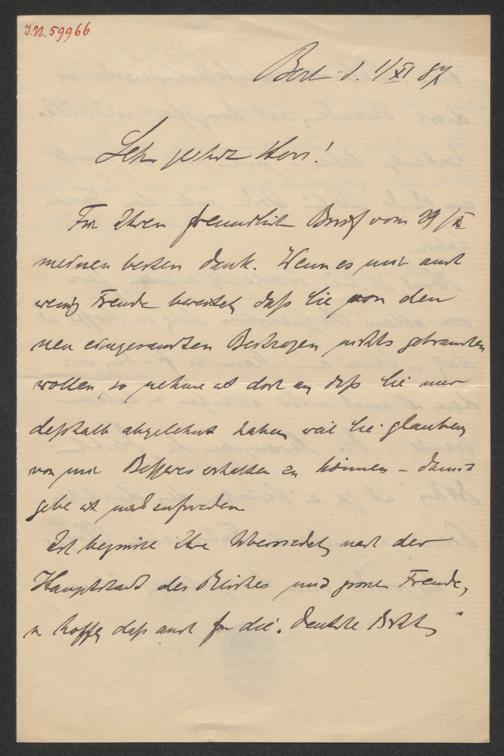 J.N. 59966
Berl. d. 1/XI 87
Sehr geehrter Herr!
Für Ihren freundlich Brief vom 29/X
meinen besten Dank. Wenn es mir auch
wenig Freude bereitet, daß Sie von den
neu eingesandten Beitragen nichts gebrauchen
wollen, so nehme ich doch an daß Sie nur
deßhalb abgelehnt haben, weil Sie glauben
von mir Besseres erhalten zu können – damit
gebe ich mich zufrieden
Ich begrüsse Ihre Übersiedelg nach der
Hauptstadt des Reiches mit grosser Freude,
u. hoffe, daß auch für die „Deutsche